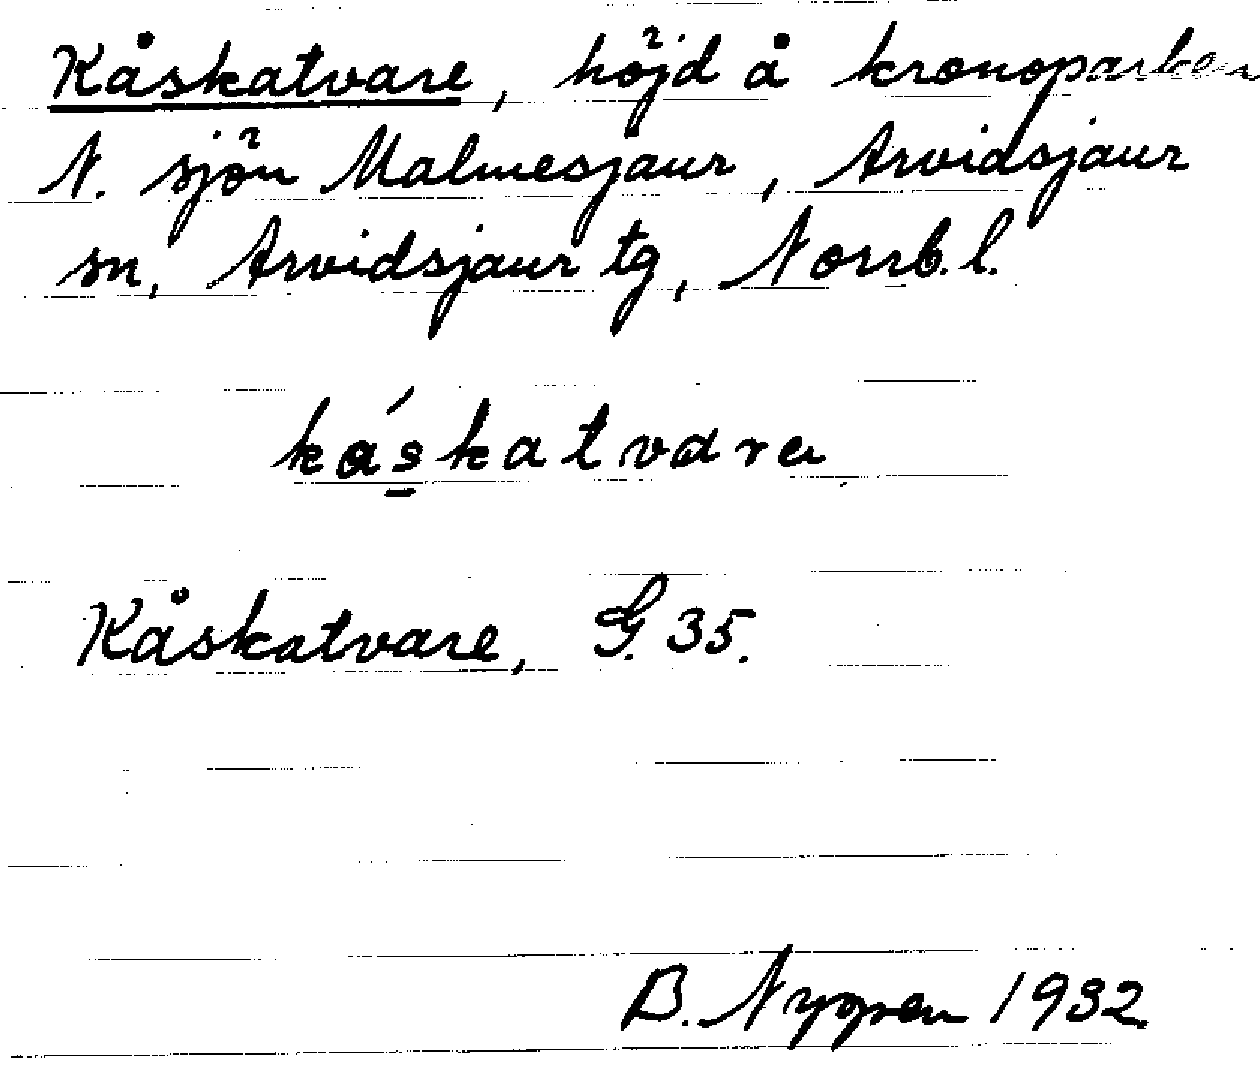 Kåskatvare, höjd å kronoparken
N. sjön Malmesjaur, Arvidsjaur
sn, Arvidsjaur tg, Norrb. l.
káskatvarɐ
Kåskatvare, G. 35.
B. Nygren 1932